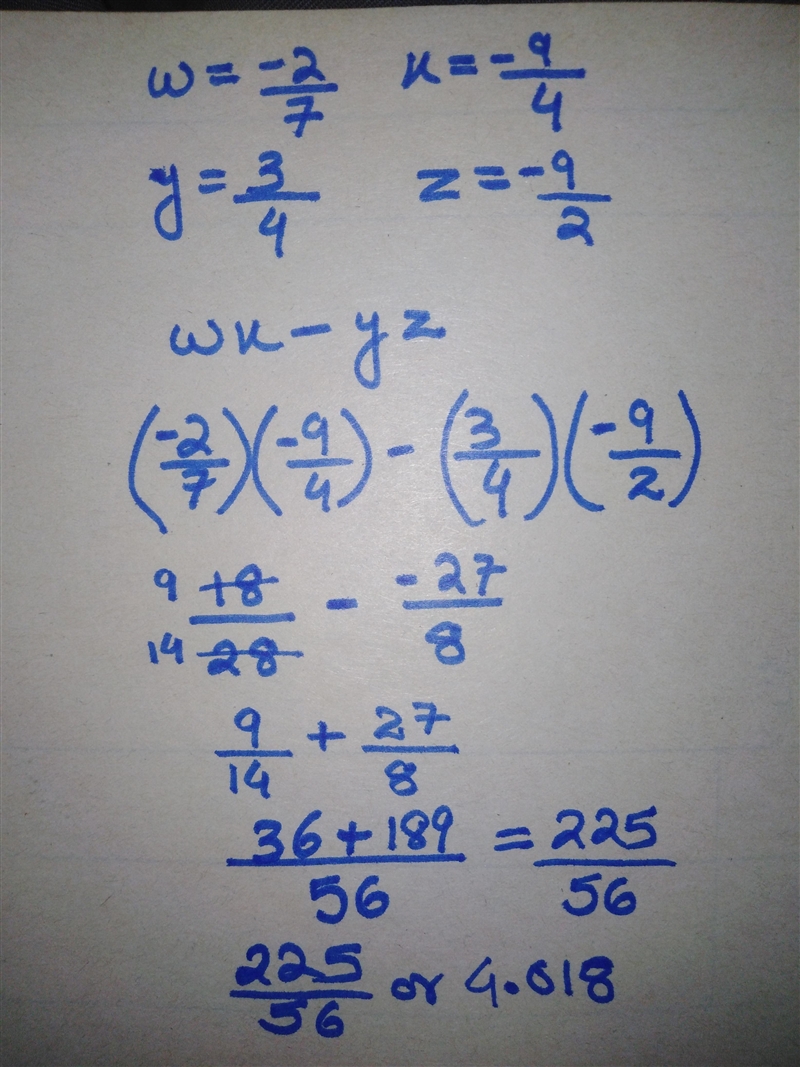 w = -2/7 x = -9/4
y = 3/4 z = -9/2
wx - yz
(-2/7)(-9/4) - (3/4)(-9/2)
9/14 +8/28 - -27/8
9/14 + 27/8
36+189/56 = 225/56
225/56 or 4.018